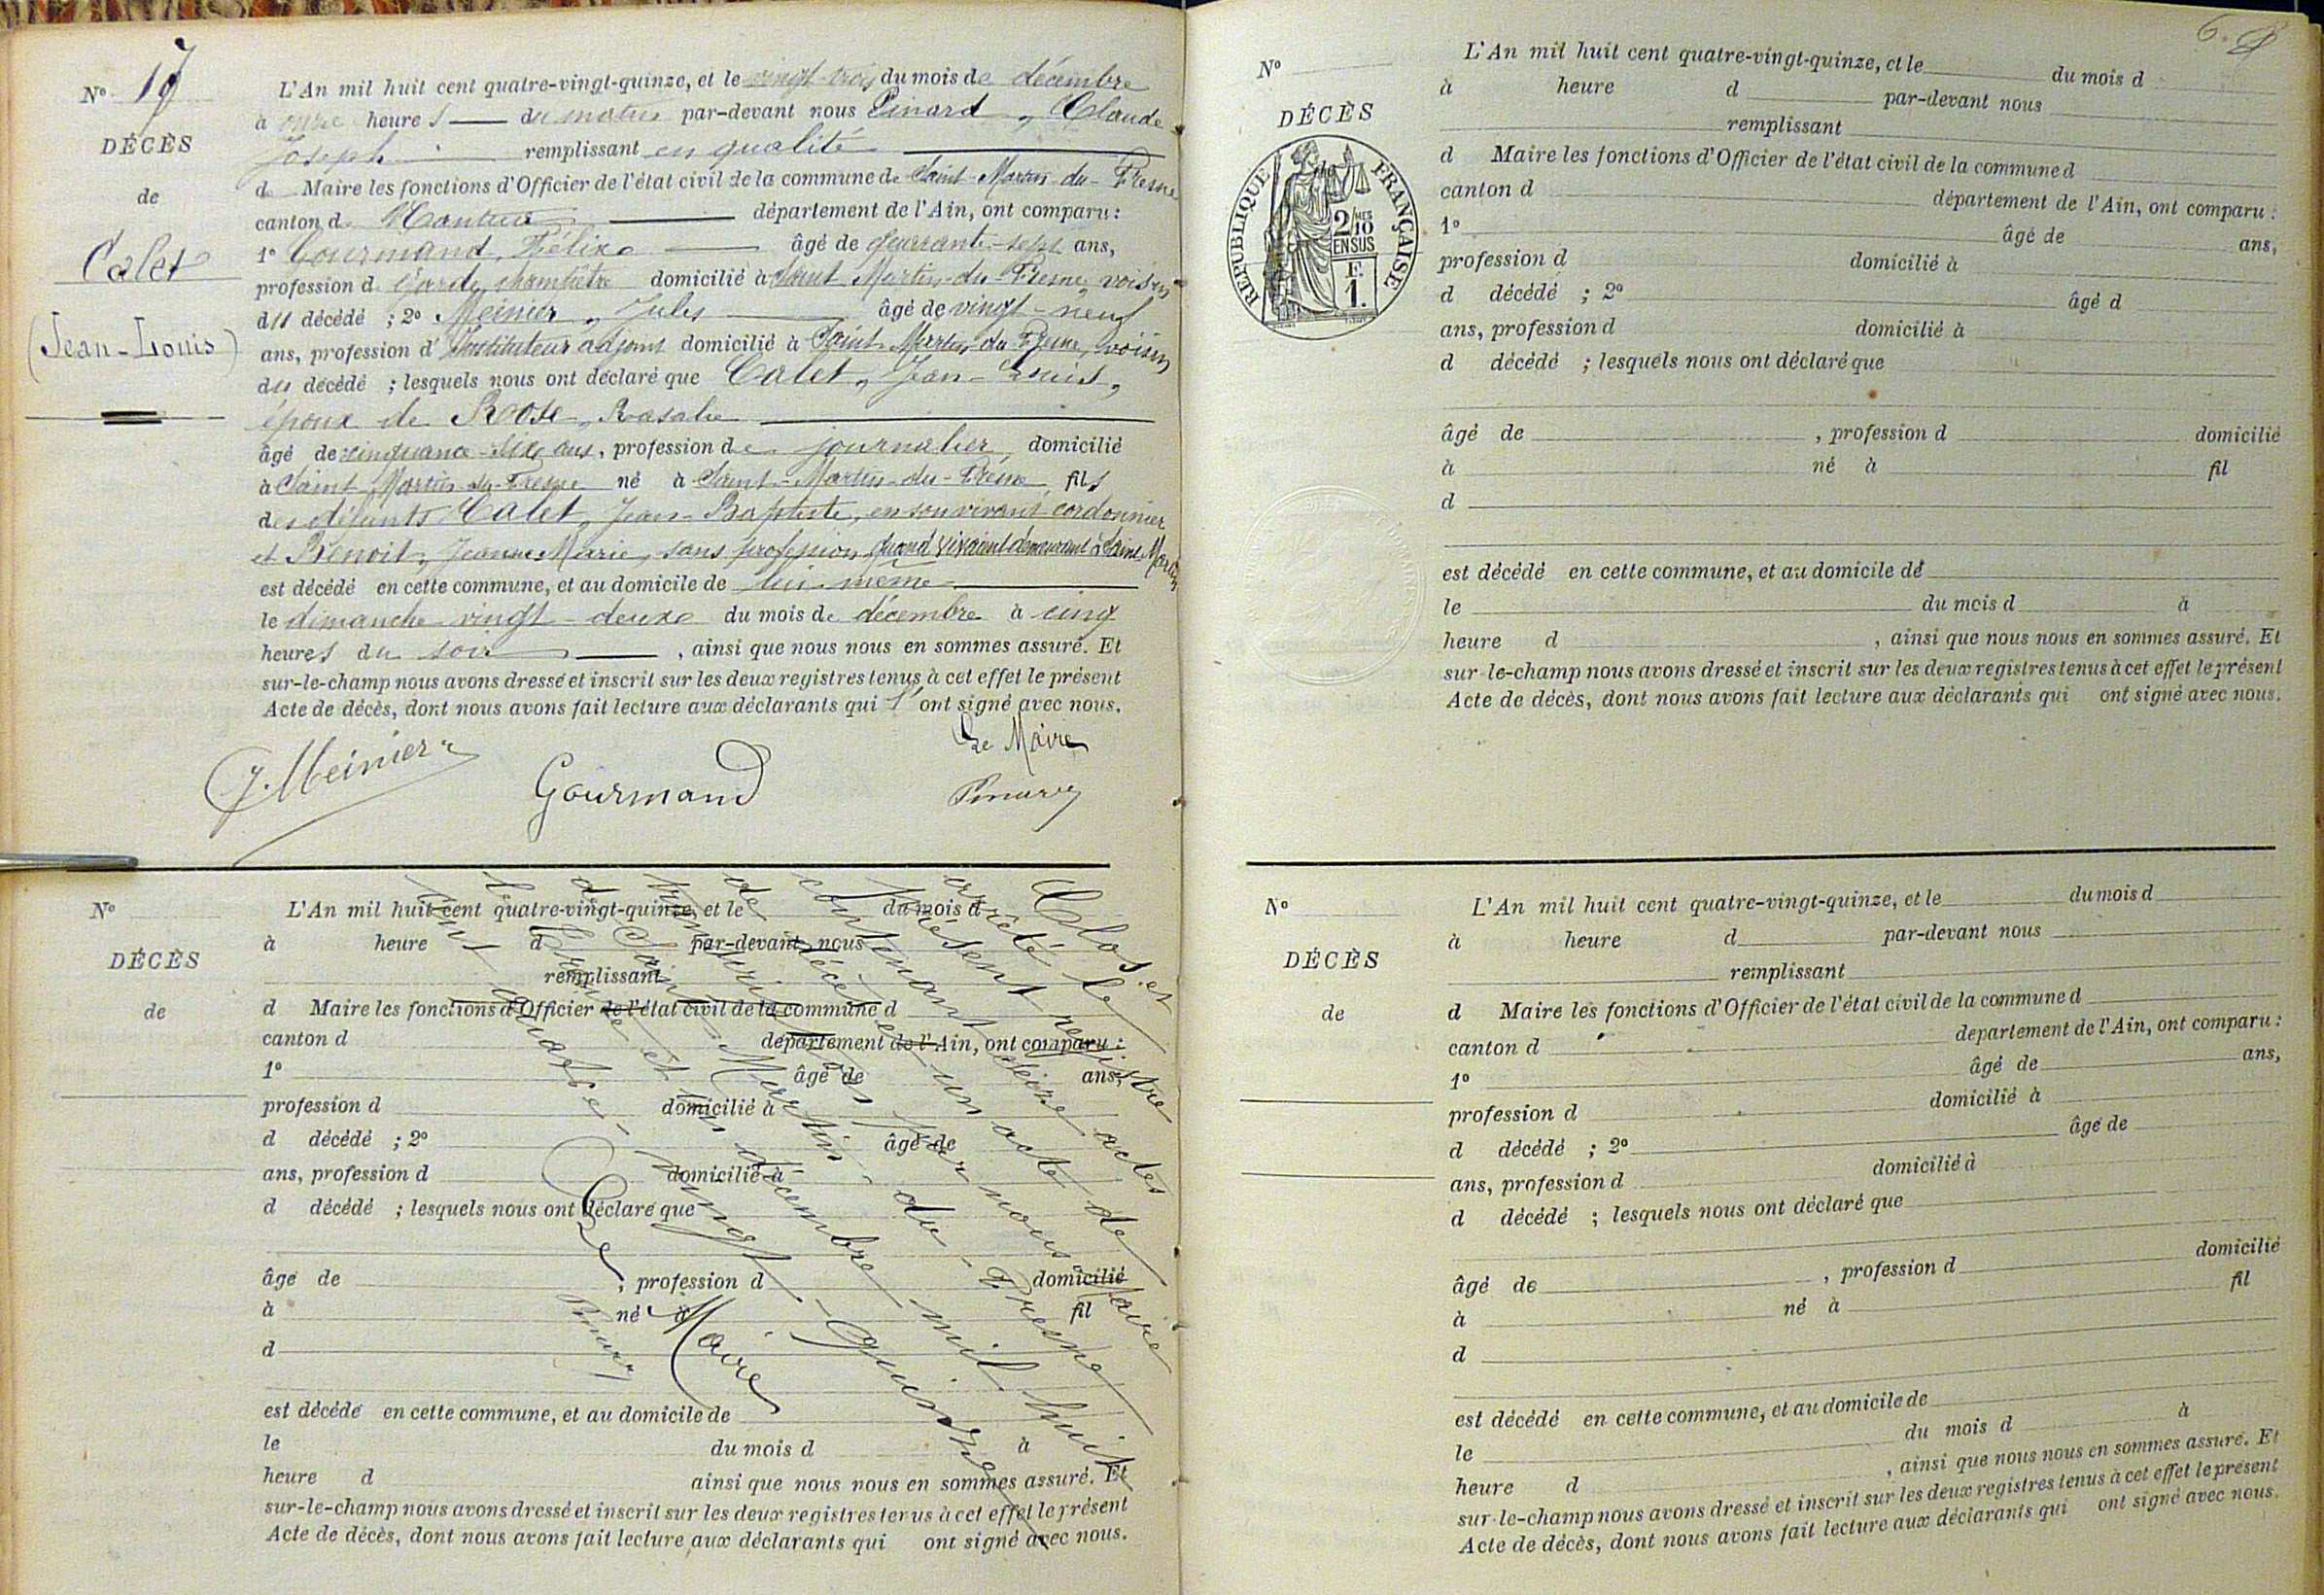 Nº 17
DÉCÈS
de
Calet
(Jean-Louis)
L'An mil huit cent quatre-vingt-quinze, et le vingt-trois du mois de décembre
à onze heures du matin par-devant nous Pinard, Claude
Joseph remplissant en qualité
de Maire les fonctions d'Officier de l'état civil de la commune de Saint-Martin-du-Fresne
canton de Nantua département de l'Ain, ont comparu :
1º Gourmand, Félix âgé de quarante-sept ans,
profession de Garde champêtre domicilié à Saint-Martin-du-Fresne, voisin
du décédé ; 2º Meinier, Jules âgé de vingt-neuf
ans, profession d'Instituteur adjoint domicilié à Saint-Martin-du-Fresne, voisin
du décédé ; lesquels nous ont déclaré que Calet, Jean-Louis,
époux de Rose, Rosalie
âgé de cinquante-six ans, profession de journalier, domicilié
à Saint-Martin-du-Fresne né à Saint-Martin-du-Fresne, fils
des défunts Calet, Jean-Baptiste, en son vivant cordonnier
et Benoit, Jeanne Marie, sans profession, quand vivaient demeurant à Saint-Martin
est décédé en cette commune, et au domicile de lui-même
le dimanche vingt-deux du mois de décembre à cinq
heures du soir, ainsi que nous nous en sommes assuré. Et
sur-le-champ nous avons dressé et inscrit sur les deux registres tenus à cet effet le présent
Acte de décès, dont nous avons fait lecture aux déclarants qui l'ont signé avec nous.
Le Maire
J. Meinier
Gourmand
Pinard
Nº
DÉCÈS
de
L'An mil huit cent quatre-vingt-quinze, et le du mois d
à heure d par-devant nous
remplissant
d Maire les fonctions d'Officier de l'état civil de la commune d
canton d département de l'Ain, ont comparu :
1º âgé de ans,
profession d domicilié à
d décédé ; 2º âgé de
ans, profession d domicilié à
d décédé ; lesquels nous ont déclaré que
âgé de , profession d domicilié
à né à fil
d
est décédé en cette commune, et au domicile de
le du mois d à
heure d ainsi que nous nous en sommes assuré. Et
sur-le-champ nous avons dressé et inscrit sur les deux registres tenus à cet effet le présent
Acte de décès, dont nous avons fait lecture aux déclarants qui ont signé avec nous.
Clos et
arrêté le
présent registre
contenant seize actes
de décès et un acte de
par nous Maire
de Saint-Martin-du-Fresne
le trente et un décembre mil huit
cent quatre-vingt-quinze
Le Maire
Pinard
6.
Nº
DÉCÈS
RÉPUBLIQUE FRANÇAISE
2/10 MES
EN SUS
F.
1.
L'An mil huit cent quatre-vingt-quinze, et le du mois d
à heure d par-devant nous
remplissant
d Maire les fonctions d'Officier de l'état civil de la commune d
canton d département de l'Ain, ont comparu :
1º âgé de ans,
profession d domicilié à
d décédé ; 2º âgé d
ans, profession d domicilié à
d décédé ; lesquels nous ont déclaré que
âgé de , profession d domicilié
à né à fil
d
est décédé en cette commune, et au domicile de
le du mois d à
heure d , ainsi que nous nous en sommes assuré. Et
sur-le-champ nous avons dressé et inscrit sur les deux registres tenus à cet effet le présent
Acte de décès, dont nous avons fait lecture aux déclarants qui ont signé avec nous.
Nº
DÉCÈS
de
L'An mil huit cent quatre-vingt-quinze, et le du mois d
à heure d par-devant nous
remplissant
d Maire les fonctions d'Officier de l'état civil de la commune d
canton d département de l'Ain, ont comparu :
1º âgé de ans,
profession d domicilié à
d décédé ; 2º âgé de
ans, profession d domicilié à
d décédé ; lesquels nous ont déclaré que
âgé de , profession d domicilié
à né à fil
d
est décédé en cette commune, et au domicile de
le du mois d à
heure d , ainsi que nous nous en sommes assuré. Et
sur-le-champ nous avons dressé et inscrit sur les deux registres tenus à cet effet le présent
Acte de décès, dont nous avons fait lecture aux déclarants qui ont signé avec nous.